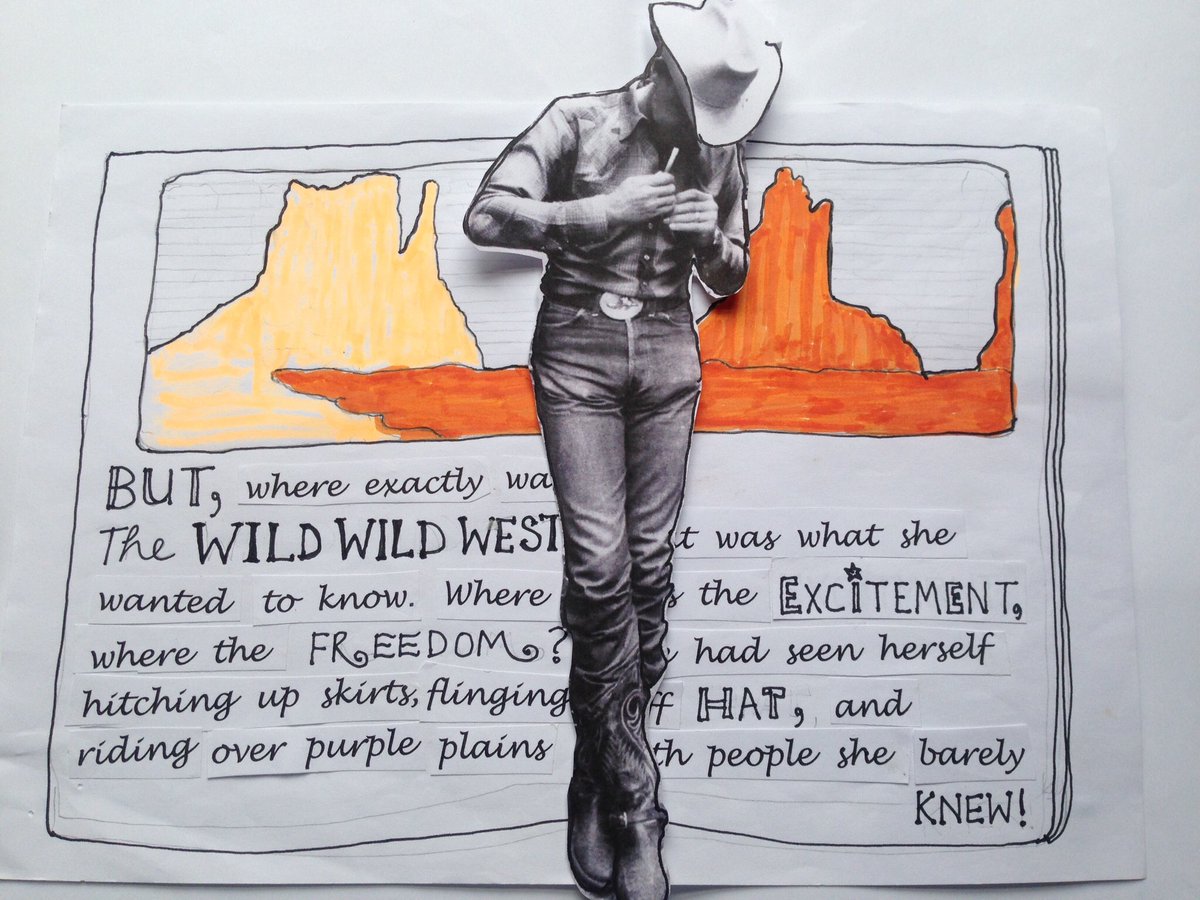 BUT, where exactly
The WILD WILD WEST was what she
wanted to know. Where the EXCITEMENT,
where the FREEDOM? had seen herself
hitching up skirts, flinging HAT, and
riding over purple plains people she barely
KNEW!